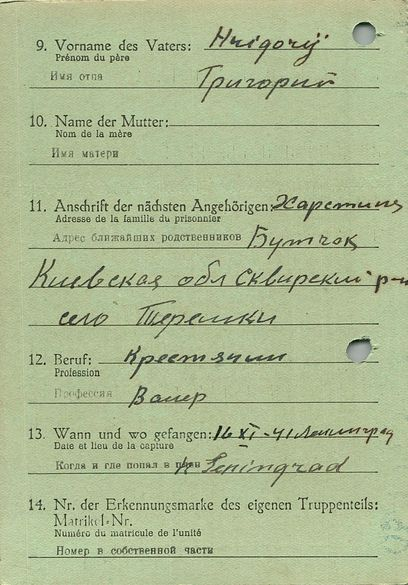 9. Vorname des Vaters: Hrigorij
Prénom du père
Имя отца Григорий
10. Name der Mutter:
Nom de la mère
Имя матери
11. Anschrift der nächsten Angehörigen:
Adresse de la famille du prisonnier
Адрес ближайших родственников
Киевская обл Сквирский р-н
село Терешки
12. Beruf:
Profession
Профессия Bauer
13. Wann und wo gefangen: 16 XI-41 Ленинград
Date et lieu de la capture
Когда и где попал в плен Leningrad
14. Nr. der Erkennungsmarke des eigenen Truppenteils:
Matrikel-Nr.
Numéro du matricule de l'unité
Номер в собственной части